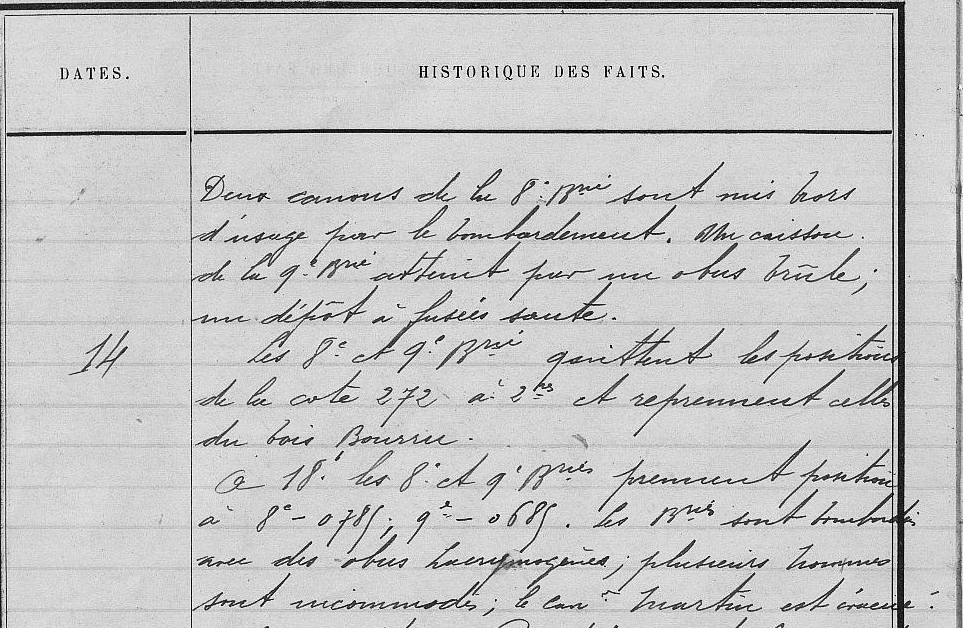 DATES.
HISTORIQUE DES FAITS.
Deux canons de la 8e Brie sont mis hors
d'usage par le bombardement. Un caisson
de la 9e Brie atteint par un obus brûle;
un dépôt à fusées saute.
14
Les 8e et 9e Brie quittent les positions
de la cote 272 à 2hs et reprennent celles
du bois Bourru.
A 18h les 8e et 9e Bries prennent position
à 8e - 0785; 9e - 0685. Les Bries sont bombardées
avec des obus lacrymogènes; plusieurs hommes
sont incommodés; le canr Martin est évacué.